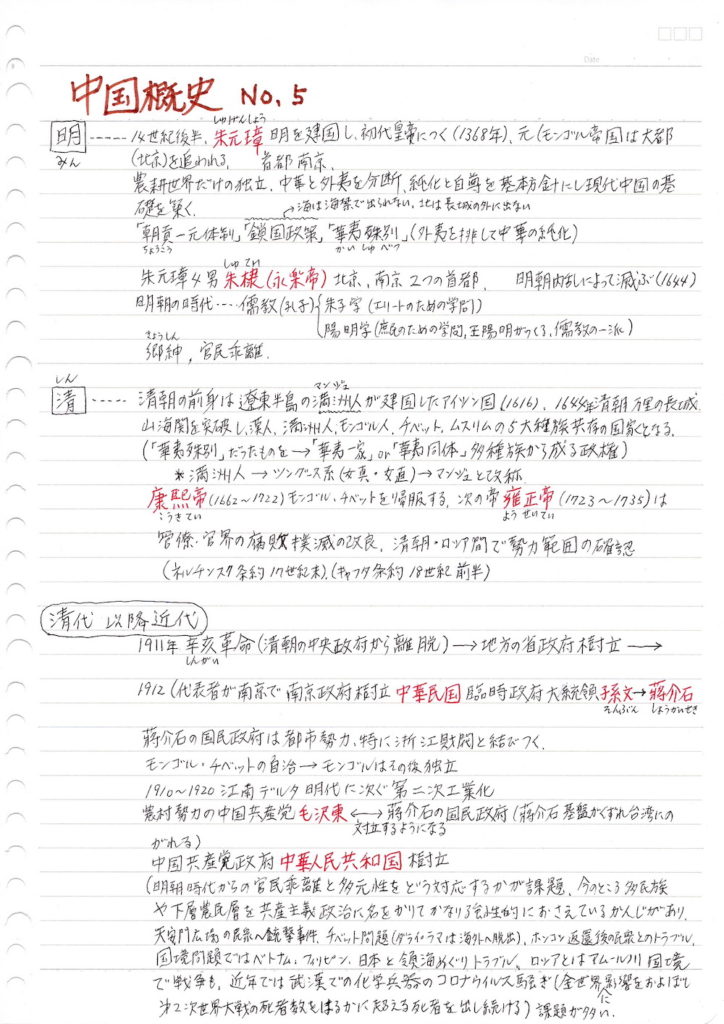 Date
中国概史 No.5
しゅげんしょう
明 ----- 14世紀後半、朱元璋 明を建国し、初代皇帝につく(1368年)、元(モンゴル帝国)は大都
みん (北京)を追われる、 首都南京、
農耕世界だけの独立、中華と外夷を分断、純化と自尊を基本方針にし現代中国の基
礎を築く、 →海は海禁で出られない、北は長城の外に出ない
「朝貢一元体制」「鎖国政策」「華夷殊別」(外夷を排して中華の純化)
ちょうこう かい しゅべつ
しゅてい
朱元璋4男 朱棣(永楽帝) 北京、南京 2つの首都、 明朝内乱によって滅ぶ(1644)
明朝の時代 ---- 儒教(孔子) 朱子学(エリートのための学問)
陽明学(庶民のための学問、王陽明がつくる、儒教の一派)
きょうしん
郷紳、官民乖離、
しん マンジュ
清 ----- 清朝の前身は遼東半島の満洲人が建国したアイシン国(1616)、1644年清朝万里の長城
山海関を突破し、漢人、満洲人、モンゴル人、チベット、ムスリムの5大種族共存の国家となる、
(「華夷殊別」だったものを→「華夷一家」or「華夷同体」多種族から成る政権)
*満洲人 → ツングース系(女真・女直)→マンジュと改称
康熙帝(1662〜1722)モンゴル・チベットを帰服する、次の帝 雍正帝(1723〜1735)は
こうきてい ようせいてい
官僚・官界の腐敗撲滅の改良、清朝・ロシア間で勢力範囲の確認
(ネルチンスク条約17世紀末)、(キャフタ条約18世紀前半)
清代以降近代
1911年 辛亥革命(清朝の中央政府から離脱) → 地方の省政府樹立 →
しんがい
1912(代表者が南京で南京政府樹立 中華民国 臨時政府大統領孫文→蔣介石
そんぶん しょうかいせき
蔣介石の国民政府は都市勢力、特に浙江財閥と結びつく、
モンゴル・チベットの自治→モンゴルはその後独立
1910〜1920 江南デルタ 明代に次ぐ第二次工業化
農村勢力の中国共産党 毛沢東 ←→ 蔣介石の国民政府(蔣介石基盤がくずれ台湾にの
対立するようになる
がれる)
中国共産党政府 中華人民共和国 樹立
(明朝時代からの官民乖離と多元性をどう対応するかが課題、今のところ多民族
や下層農民層を共産主義政治に名をかりてかなり強制的におさえているかんじがあり、
天安門広場の民衆へ銃撃事件、チベット問題(ダライ・ラマは海外へ脱出)、ホンコン返還後の民衆とのトラブル、
国境問題ではベトナム、フィリピン、日本と領海めぐりトラブル、ロシアとはアムール川国境
で戦争も、近年では武漢での化学兵器のコロナウイルス騒ぎ(全世界に影響をおよぼして
第2次世界大戦の死者数をはるかに超える死者を出し続ける)課題が大きい、